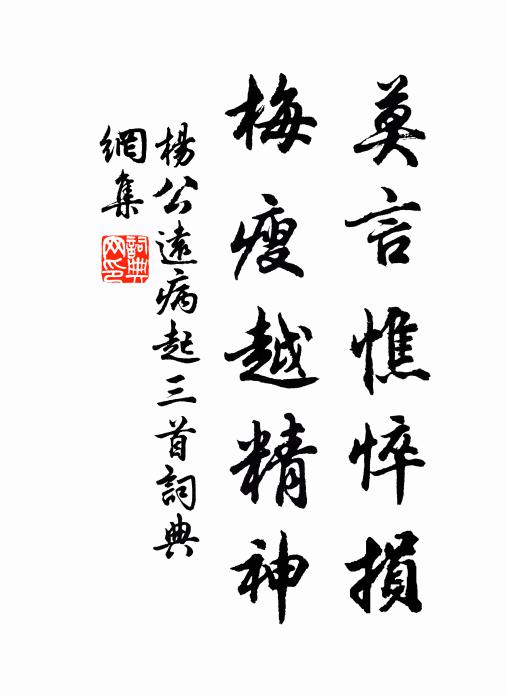 莫言憔悴損
梅瘦越精神
楊公遠病起三首詞典
網集
詞典网印